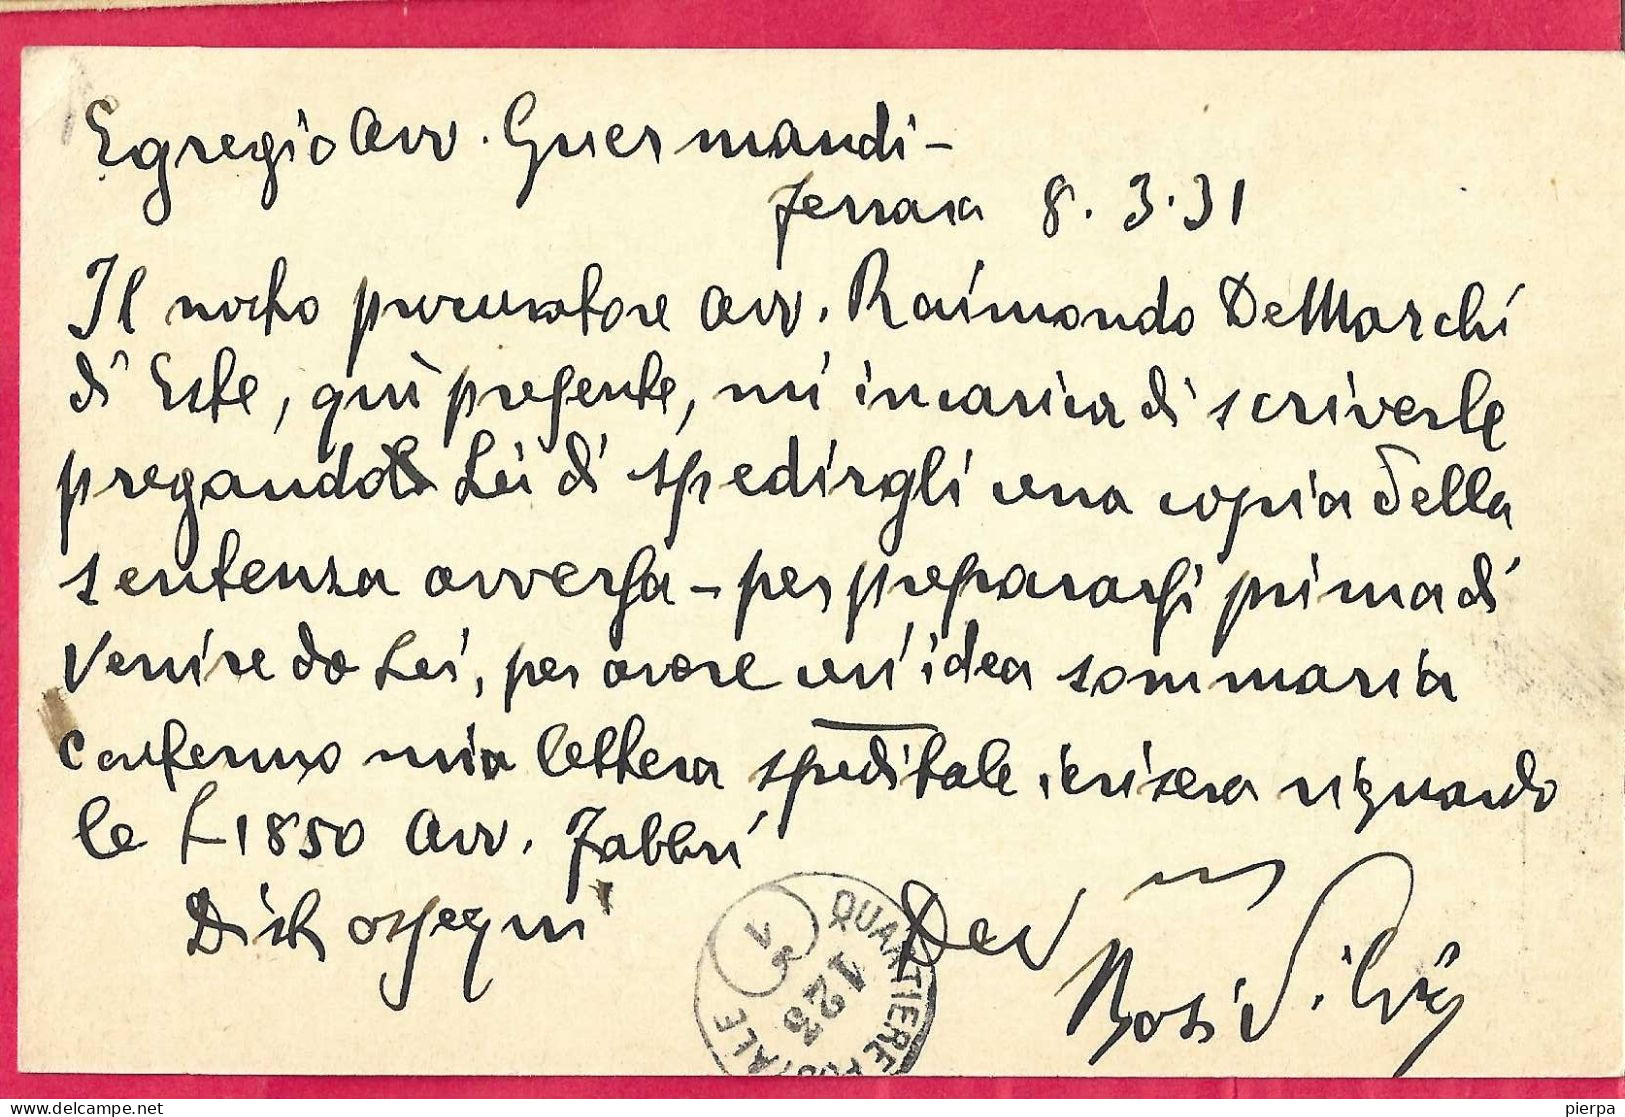 Egregio Avv. Guermandi -
Ferrara 8. 3. 31
Il nostro procuratore avv. Raimondo DeMarchi
di Este, quì presente, mi incarica di scriverle
pregando Lei di spedirgli una copia della
sentenza avversa - per prepararsi prima di
venire da Lei, per avere un'idea sommaria
Confermo mia lettera speditale ierisera riguardo
le £ 1850 Avv. Fabbri
Dist ossequi
Dev
Bosi Silvio
QUARTIERE POSTALE
123
pierpa